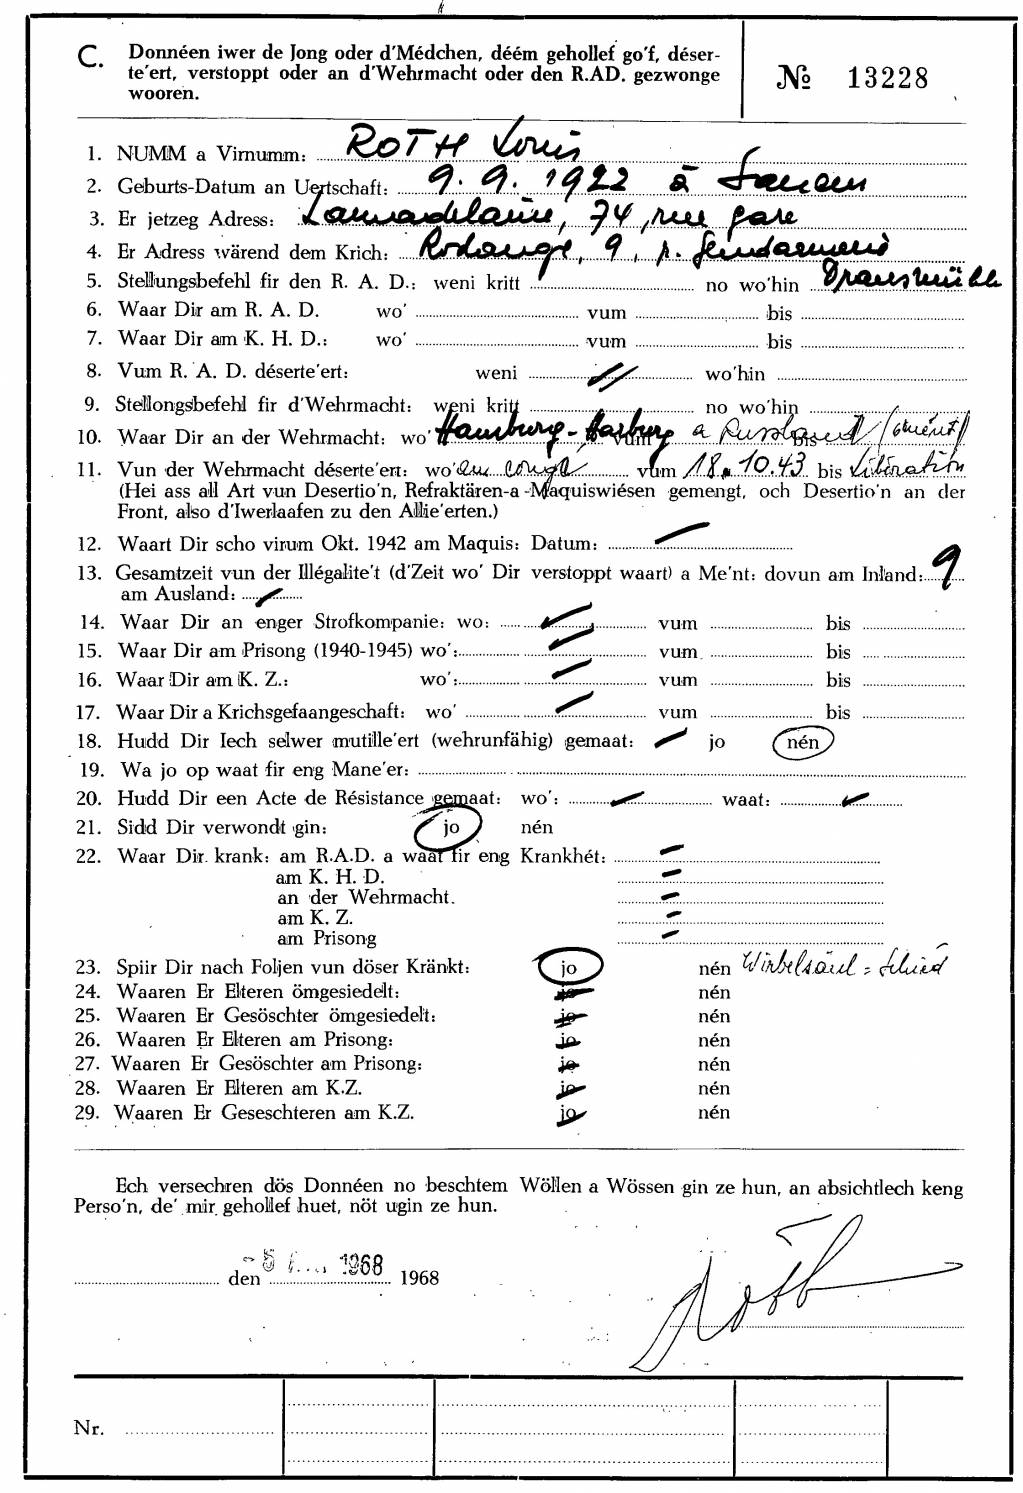 C. Donnéen iwer de Jong oder d'Médchen, déém gehollef go'f, déser-
te'ert, verstoppt oder an d'Wehrmacht oder den R.AD. gezwonge
wooren.
№ 13228
1. NUMM a Virnumm: ROTH Louis
2. Geburts-Datum an Uertschaft: 9. 9. 1922 à Sanem
3. Er jetzeg Adress: Lamadelaine, 74, rue gare
4. Er Adress wärend dem Krich: Rodange, 9, r. Gendarmerie
5. Stellungsbefehl fir den R. A. D.: weni kritt no wo'hin
6. Waar Dir am R. A. D. wo' vum bis
7. Waar Dir am K. H. D.: wo' vum bis
8. Vum R. A. D. déserte'ert: weni wo'hin
9. Stellongsbefehl fir d'Wehrmacht: weni kritt no wo'hin
10. Waar Dir an der Wehrmacht: wo' Hamburg-Harburg vum a Russland bis
11. Vun der Wehrmacht déserte'ert: wo' en congé vum 18.10.43 bis Libération
(Hei ass all Art vun Desertio'n, Refraktären-a-Maquiswiésen gemengt, och Desertio'n an der
Front, also d'Iwerlaafen zu den Allie'erten.)
12. Waart Dir scho virum Okt. 1942 am Maquis: Datum:
13. Gesamtzeit vun der Illégalite't (d'Zeit wo' Dir verstoppt waart) a Me'nt: dovun am Inland: 9
am Ausland:
14. Waar Dir an enger Strofkompanie: wo: vum bis
15. Waar Dir am Prisong (1940-1945) wo': vum bis
16. Waar Dir am K. Z.: wo': vum bis
17. Waar Dir a Krichsgefaangeschaft: wo' vum bis
18. Hudd Dir Iech selwer mutille'ert (wehrunfähig) gemaat: jo nén
19. Wa jo op waat fir eng Mane'er:
20. Hudd Dir een Acte de Résistance gemaat: wo': waat:
21. Sidd Dir verwondt gin: jo nén
22. Waar Dir krank: am R.A.D. a waat fir eng Krankhét:
am K. H. D.
an der Wehrmacht.
am K. Z.
am Prisong
23. Spiir Dir nach Foljen vun döser Kränkt: jo nén Wirbelsäul=
24. Waaren Er Elteren ömgesiedelt: jo nén
25. Waaren Er Gesöschter ömgesiedelt: jo nén
26. Waaren Er Elteren am Prisong: jo nén
27. Waaren Er Gesöschter am Prisong: jo nén
28. Waaren Er Elteren am K.Z. jo nén
29. Waaren Er Geseschteren am K.Z. jo nén
Ech versechren dös Donnéen no beschtem Wöllen a Wössen gin ze hun, an absichtlech keng
Perso'n, de' mir gehollef huet, nöt ugin ze hun.
1968
den 1968
Roth
Nr.